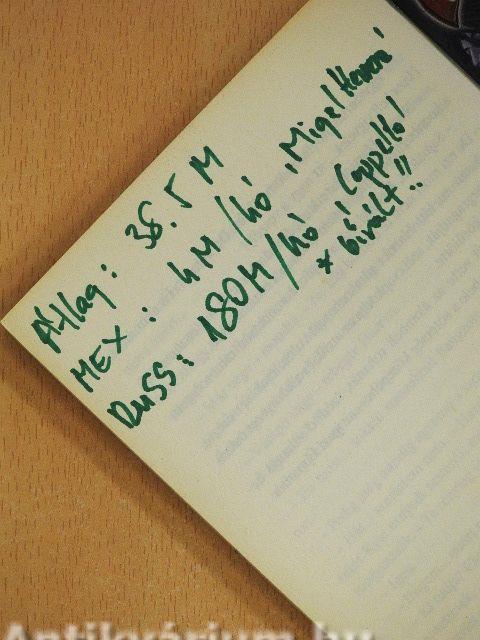 Átlag: 36.5 M
MEX: 4M/hó, Migel
RUSS: 180M/hó, Cappello!
Antikvárium.hu